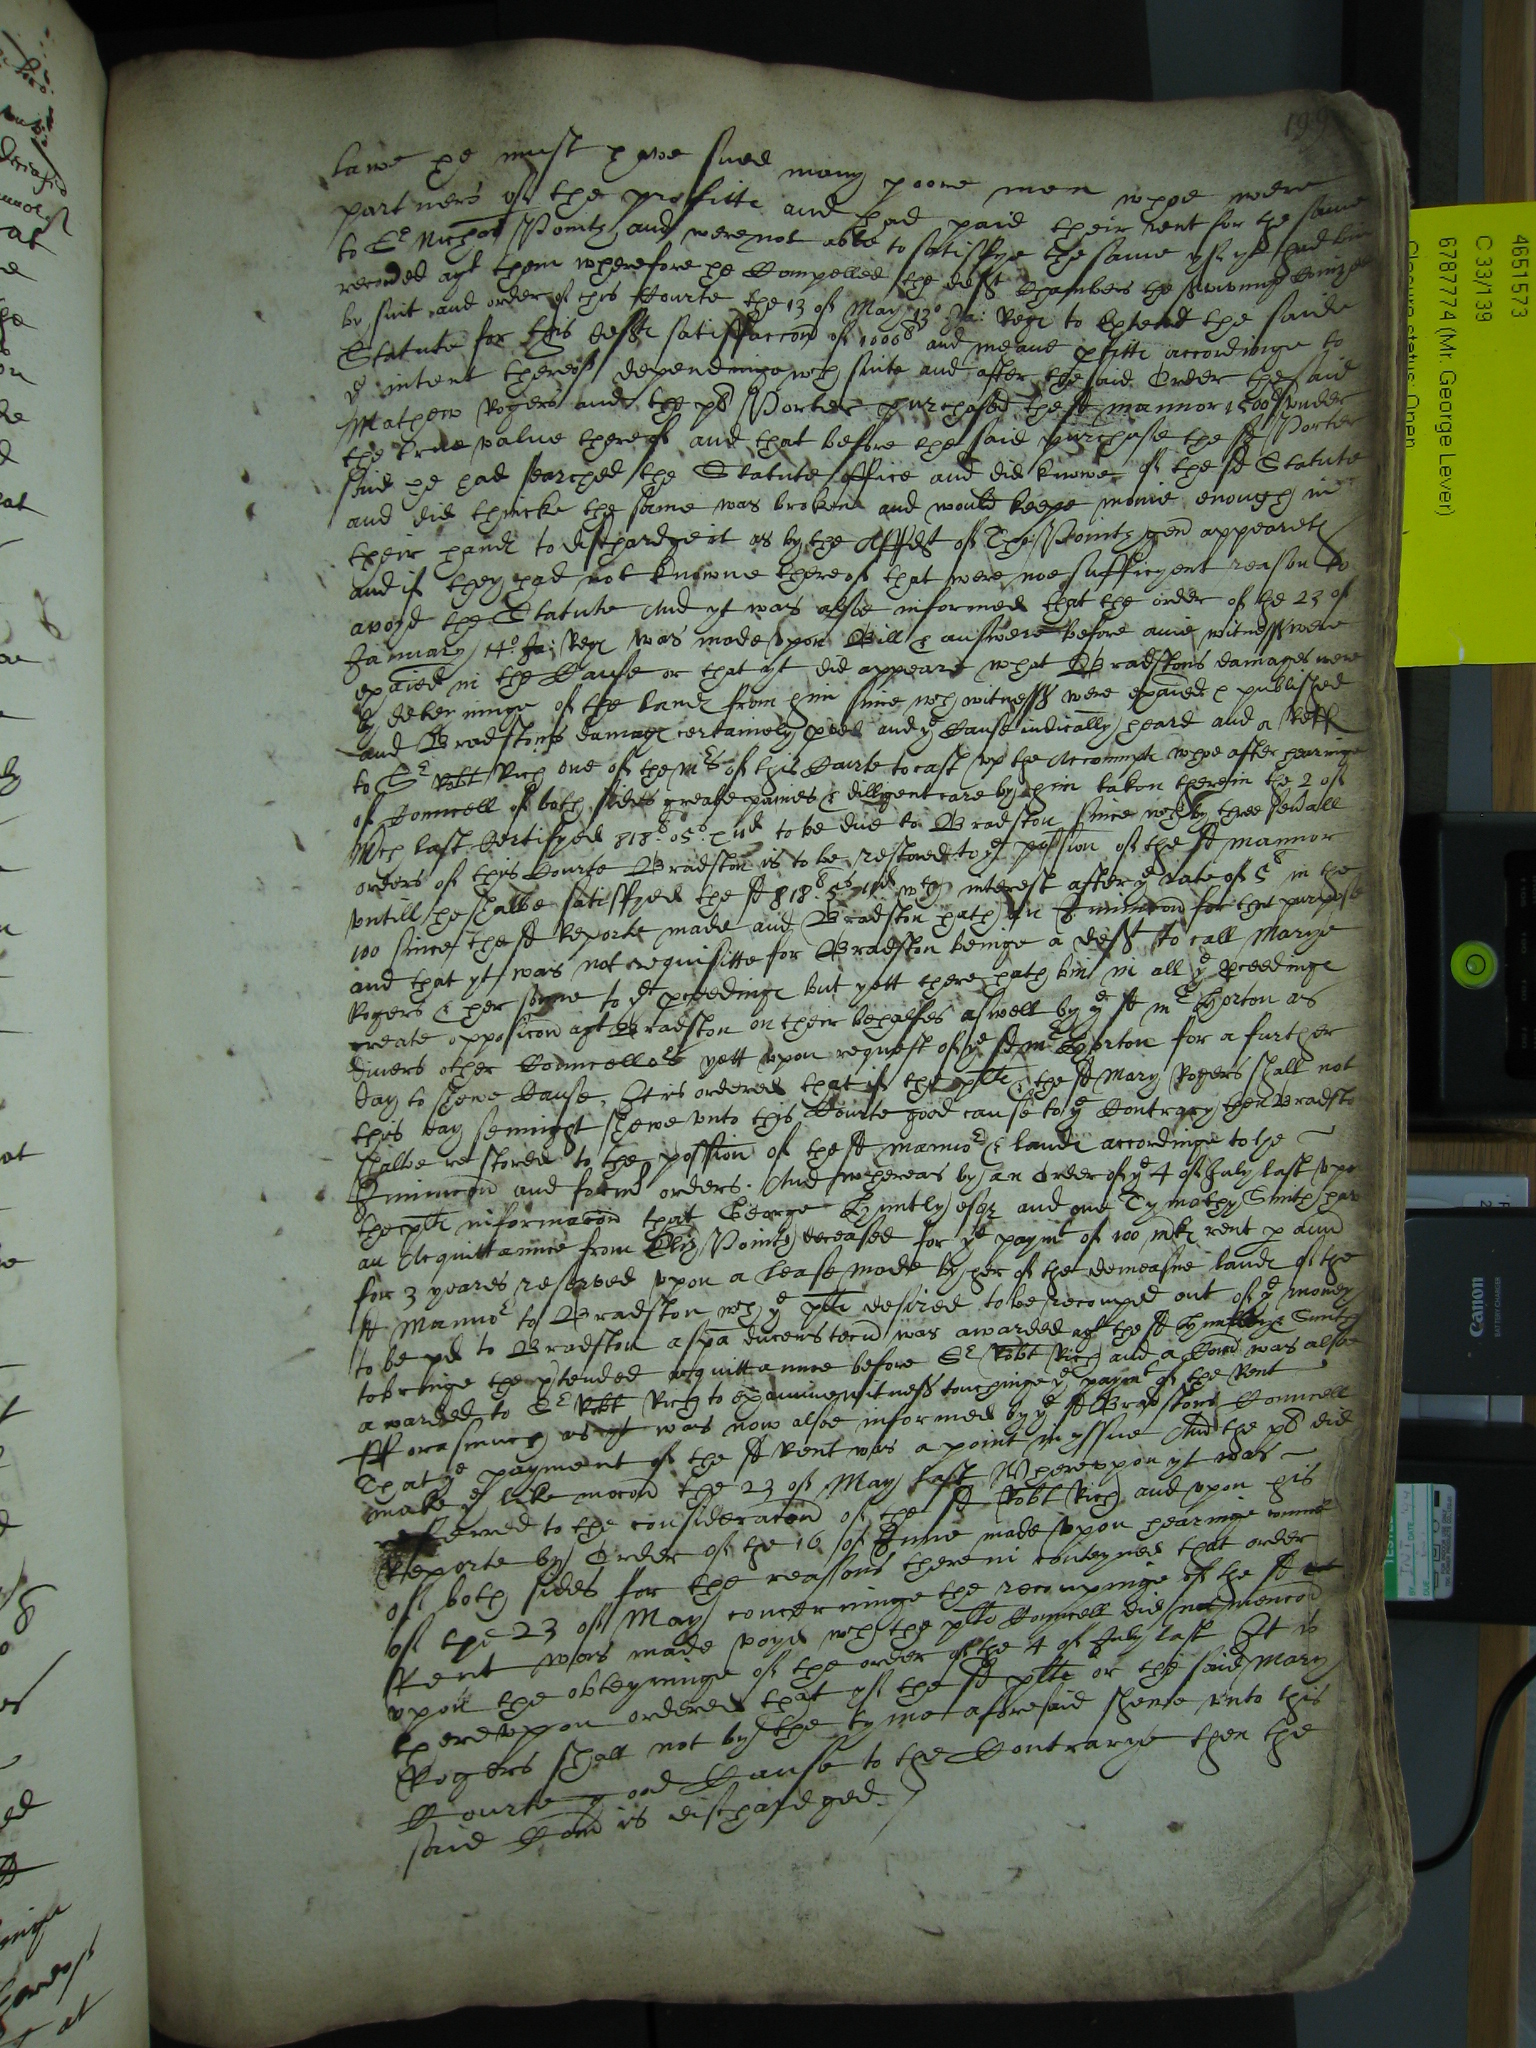 199
lawe he must have sued many poore men whoe were
partners of the profitte and had paid their rent for the same
to Sr Nichas Pointz and were not able to satisfye the same yf yt had bin
recouded agt them wherefore he Compelled the deft Chambers the surviving Conizee
by suit and order of this Courte the 13 of May 13o Ja: Regs to Extend the saide
Statute for this defts satisfaccon of 1000l and meane pfitts accordinge to
ye intent thereof dependinge wch suite and after the said Order the said
Mathew Rogers and the pl Porter purchased the sd mannor 1500l vnder
the true value thereof and that before the said purchase the sd Porter
said he had searched the Statute office and did knowe of the sd Statute
and did thincke the same was broken and would keepe monie enough in
their hands to dischardge it as by the Affidt of Tho: Pointz gen appeareth
and if they had not knowne thereof that were noe sufficyent reason to
avoyd the Statute And yt was alsoe informed that the order of the 23 of
January 14o Ja: Regs was made vpon Bill & answere before anie witness were
exaied in the Cause or that yt did appeare what Bradstons damages were
by deteyninge of the lands from him since wch witnesss were exaied & published
and Bradstons damags certainely pved and ye Cause iudically heard and a Reff
to Sr Robt Rich one of the Mrs of this Courte to cast vp the Accompt whoe after hearinge
of Councell of both sides greate paines & dilligent care by him taken therein the 2 of
Mch last Certifyed 818l 05s xid to be due to Bradston since wch by three seuall
orders of this Courte Bradston is to be restored to ye possion of the sd mannor
vntill he shalbe satisfyed the sd 818l 5s 11d wth interest after ye rate of 8l in the
100 since the sd Reporte made and Bradston hath an Iniunccon for that purpose
and that yt was not requisitte for Bradston beinge a deft to call Marye
Rogers & her sonne to ye pceedings but yett there hath bin in all ye pceedings
create opposicon agt Bradston on their behalfes aswell by ye sd mr Egerton as
divers other Councellors yett vpon request of ye sd mr Egerton for a further
day to shewe Cause, It is ordered that if the plts & the sd Mary Rogers shall not
this day sennight shewe vnto this Courte good cause to ye Contrary then Bradsto
shalbe restored to the possion of the sd mannor & lands accordinge to the
Iniunccon and former orders. And whereas by an Order of ye 4 of July last vpo
the plts informacon that George Huntly esqr and one Tymothy Smith hav
an Acquittannce from Eliz Pointz deceased for ye paymt of 100 mks rent p ann
for 3 yeares reserved vpon a lease made by her of the demeasne lands of the
sd Mannor to Bradston wch ye plts desired to be recouped out of ye money
to be pd to Bradston a spa ducens tecu was awarded agt the sd Huntley & Smith
to bringe the ptended acquittannce before Sr Robt Rich and a Com was alsoe
awarded to Sr Robt Rich to examine witness touchinge ye paymt of the Rent
Fforasmuch as yt was now alsoe informed by ye sd Bradstons Councell
That ye payment of the sd Rent was a point in yssue And the pl did
make ye like mocon the 23 of May last Wherevpon yt was
referred to the consideracon of the sd Robt Rich and vpon his
Reporte by Order of the 16 of June made vpon hearinge councell
of both sides for the reasons therein conteyned that order
of the 23 of May concerninge the recoupinge of the sd
Rent was made voyd wch the plts Councell did not mencon
vpon the obteyninge of the order of the 4 of July last It is
therevpon ordered that yf the sd plts or the said Mary
Rogers shall not by the tyme aforesaid shewe vnto this
Courte good Cause to the Contrarye then the
said Com is dischardged.
4651573
C 33/139
6787774 (Mr. George Lever)
Closure status: Open
Canon
BATTERY CHARGER
TESTED